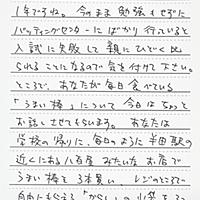 1年ですね。今のまま勉強もせずに
バッティングセンターにばかり行っていると
入試に失敗して親にひどく叱
られることになるので気を付けて下さい。
ところで、あなたが毎日食べている
「うまい棒」について今日はちょっと
お話しさせてもらいます。あなたは
学校の帰りに、毎日のように半田駅の
近くにある八百屋みたいなお店で
うまい棒を3本買い、レジのところで
自由にもらえる「からし」の小袋を3つ